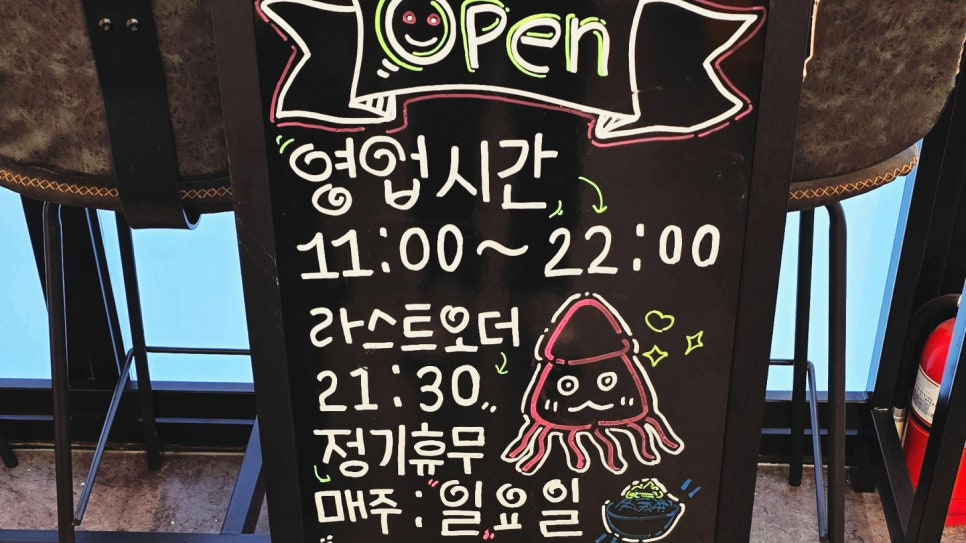 Open
영업시간
11:00~22:00
라스트오더
21:30
정기휴무
매주:일요일